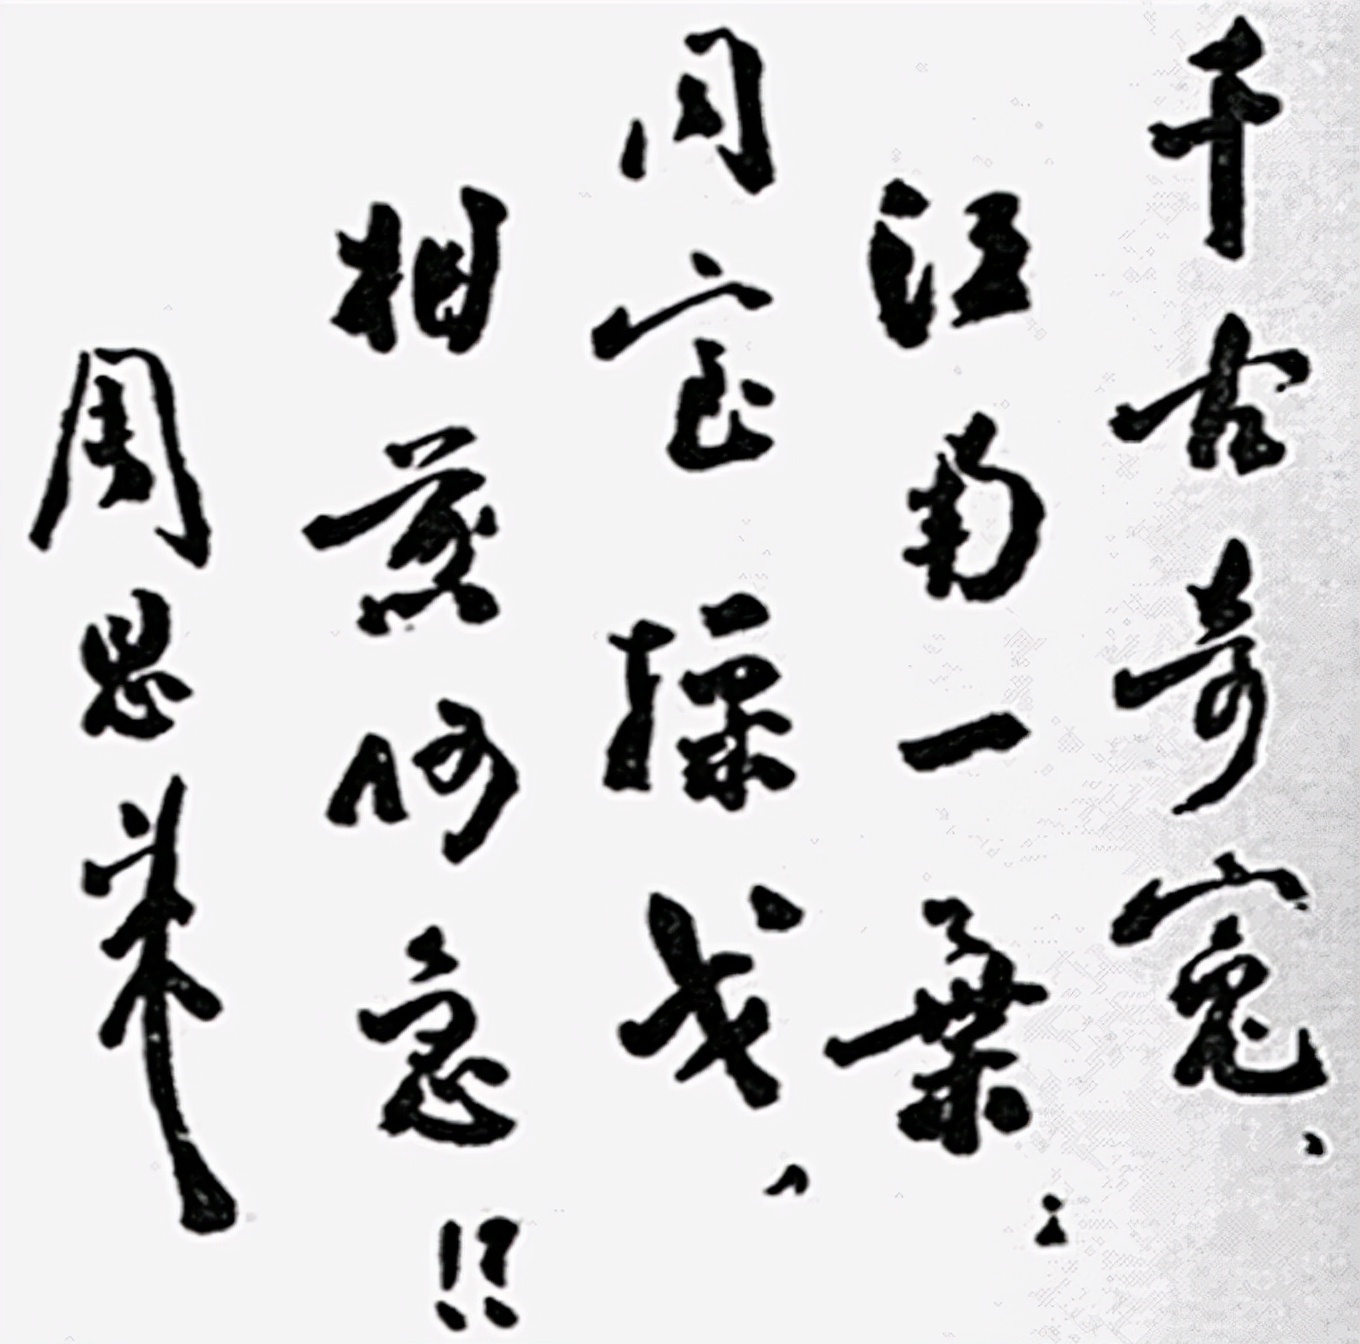 千古奇冤、
江南一葉；
同室操戈、
相煎何急！！
周恩来